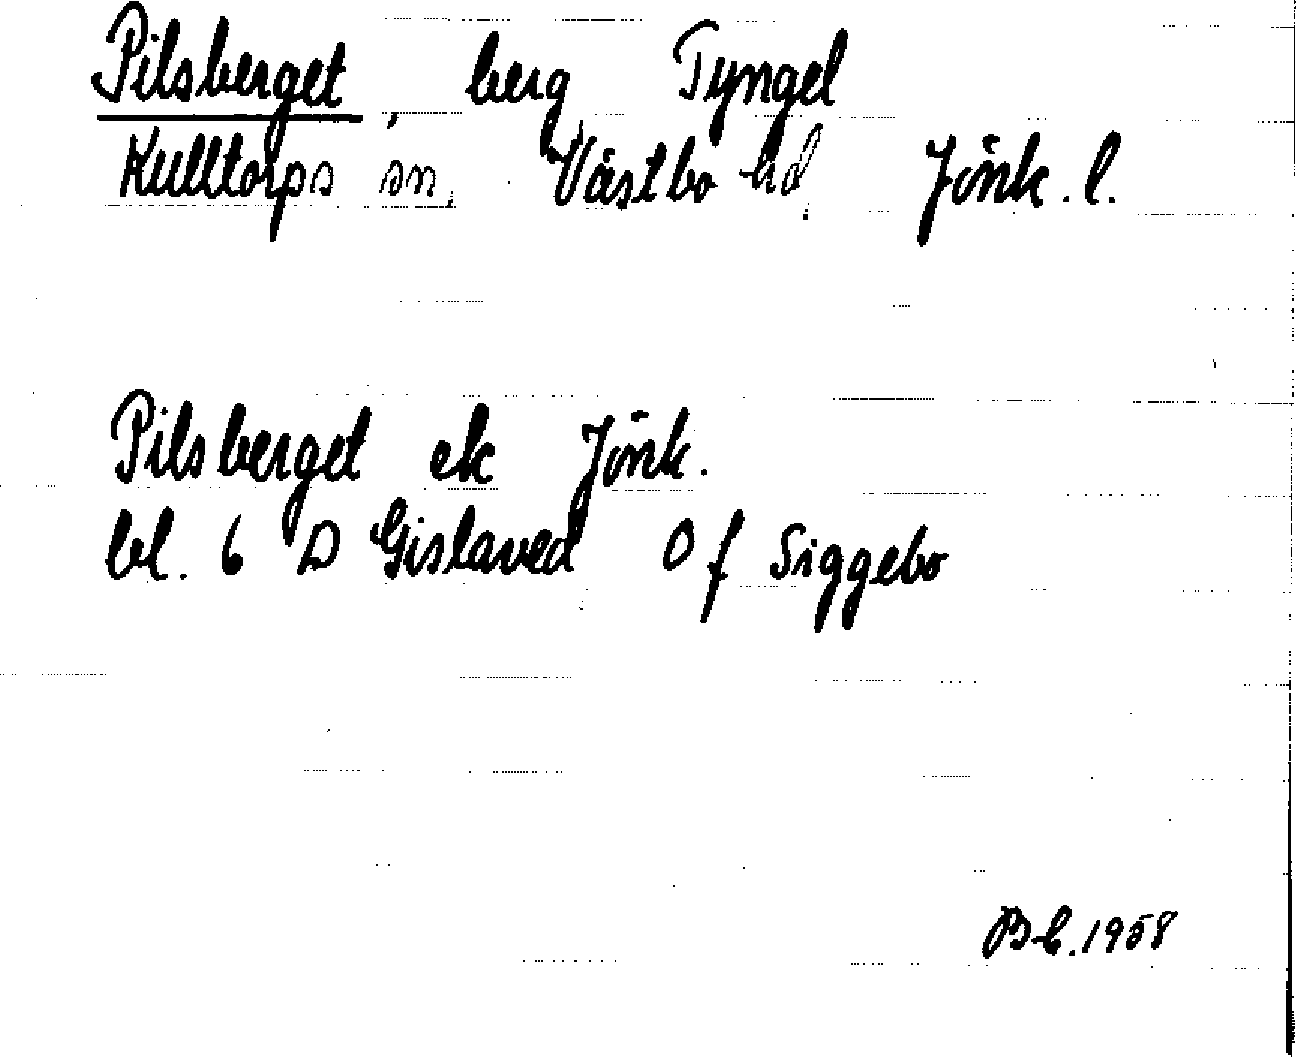 Pilsberget, berg Tyngel
Kulltorps sn, Västbo hd, Jönk. l.
Pilsberget ek Jönk.
bl. 6 D Gislaved 0 f Siggebo
1958